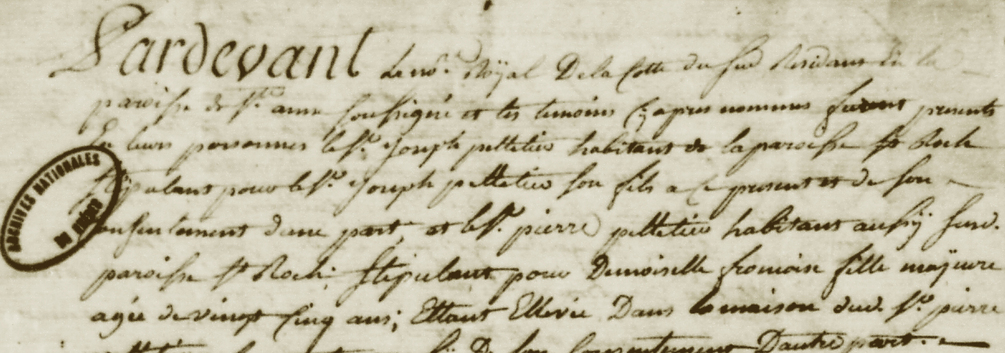 Pardevant Le no.re Royal De la Cotte du sud Residant En la
paroisse de S.te anne soussigné et les temoins Cy apres nommés furent presents
En leurs personnes le S.r Joseph pelletier habitant de la paroisse St Roch
Stipulant pour le S.r Joseph pelletier son fils a Ce present et de son
Consentement dune part, et le S.r pierre pelletier habitant aussy susd.
paroisse St Roch; Stipulant pour Demoiselle fille majeure
agée de vingt Cinq ans; Ettant Ellevée Dans la maison dud. S.r pierre
De son Consentement Dautre part.
ARCHIVES NATIONALES
DU QUÉBEC